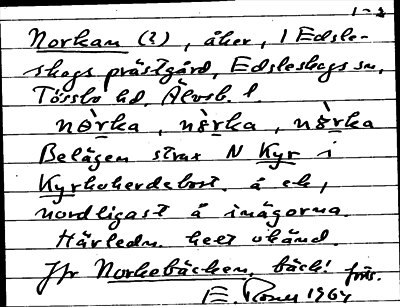 1-2
Norkan (?), åker, i Edsle-
skogs prästgård, Edsleskogs sn,
Tössbo hd, Älvsb. l.
nørka, nɛrka, nɤrka
Belägen strax N Kyr i
Kyrkoherdebost. å ek,
nordligast å inägorna.
Härledn. helt okänd.
Jfr Norkebäcken, bäck! förts.
E. 1964